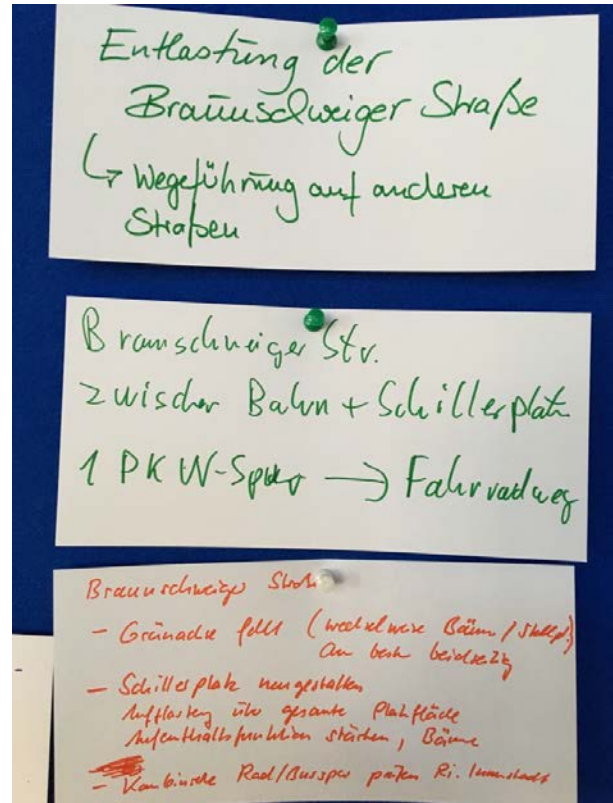 Entlastung der
Braunschweiger Straße
↳ Wegeführung auf anderen
Straßen
Braunschweiger Str.
zwischen Bahn + Schillerplatz
1 PKW-Spur → Fahrradweg
Braunschweiger Straße
- Grünachse fehlt (wechselweise Bäume / Stellpl.)
Am besten beidseitig
- Schillerplatz neugestalten
Aufpflasterung über gesamte Platzfläche
Aufenthaltsfunktion stärken, Bäume
- Kombinierte Rad/Busspur prüfen Ri. Innenstadt